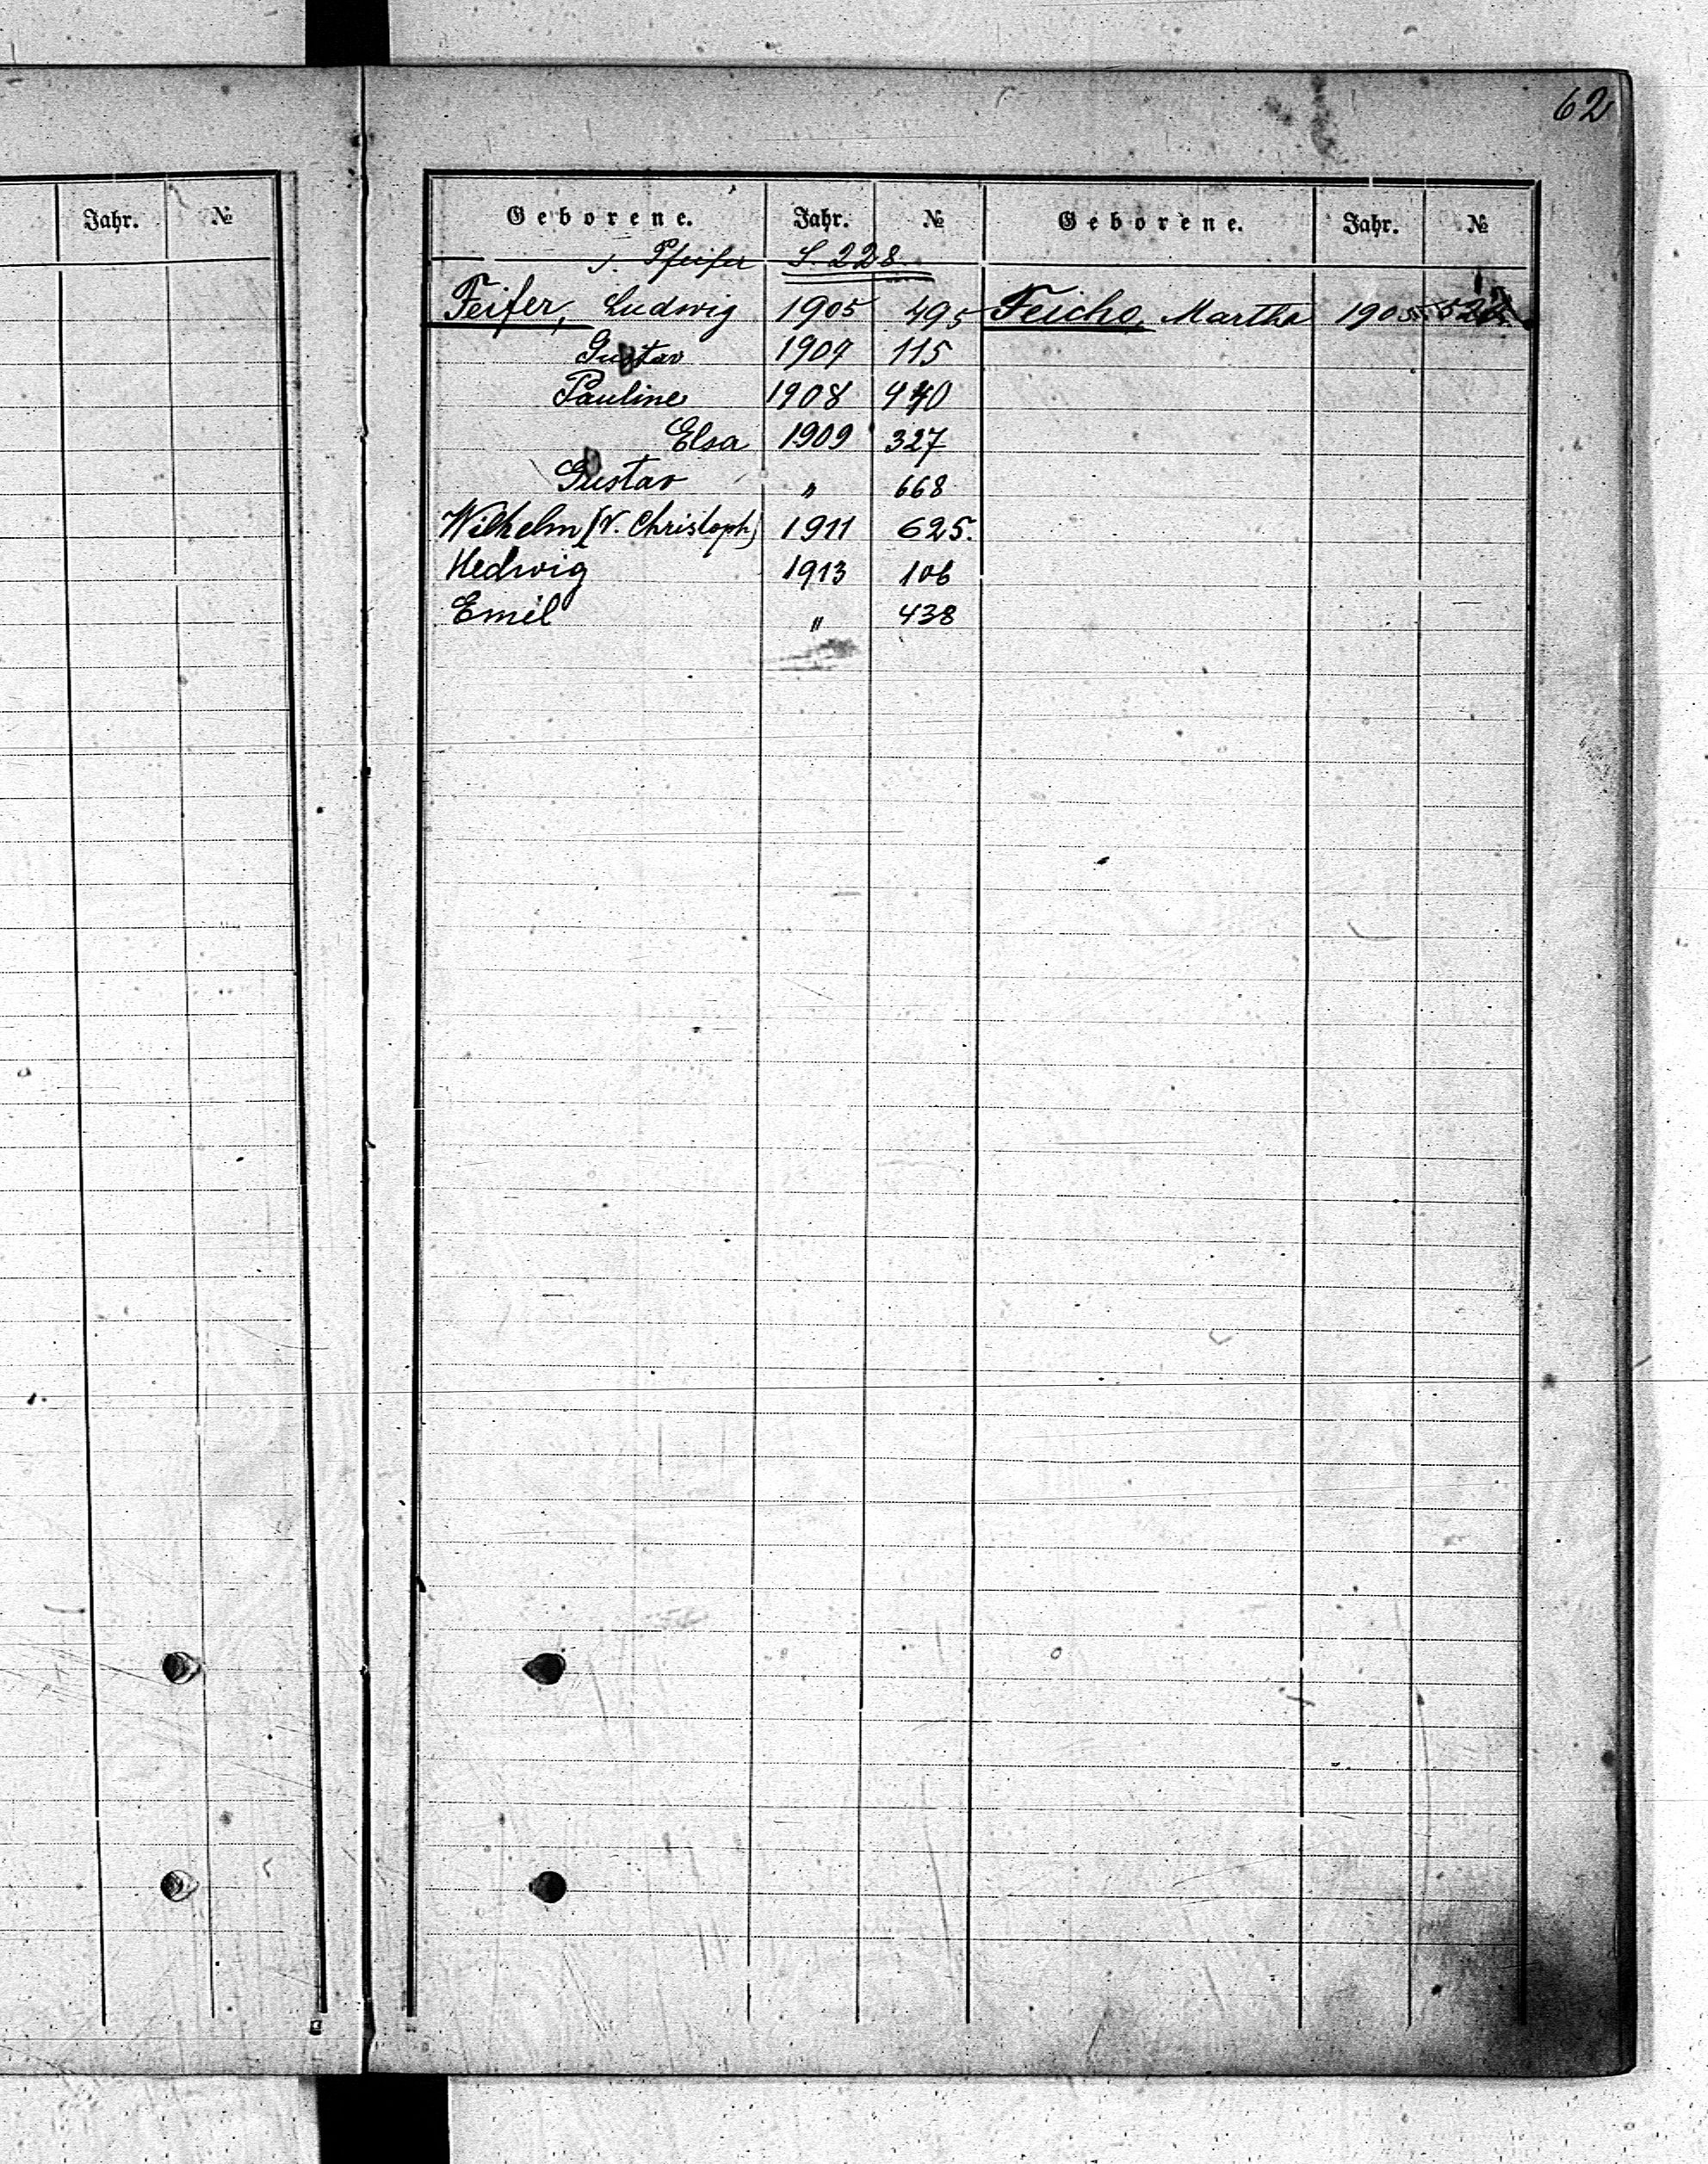 62
Jahr. №
Geborene. Jahr. № Geborene. Jahr. №
s. Pfeifer S. 228.
Feifer, Ludwig 1905 495 Feicho, Martha 1905
Gustav 1907 115
Pauline 1908 440
Elsa 1909 327
Gustav " 668
Wilhelm (V. Christoph) 1911 625.
Hedwig 1913 106
Emil " 438